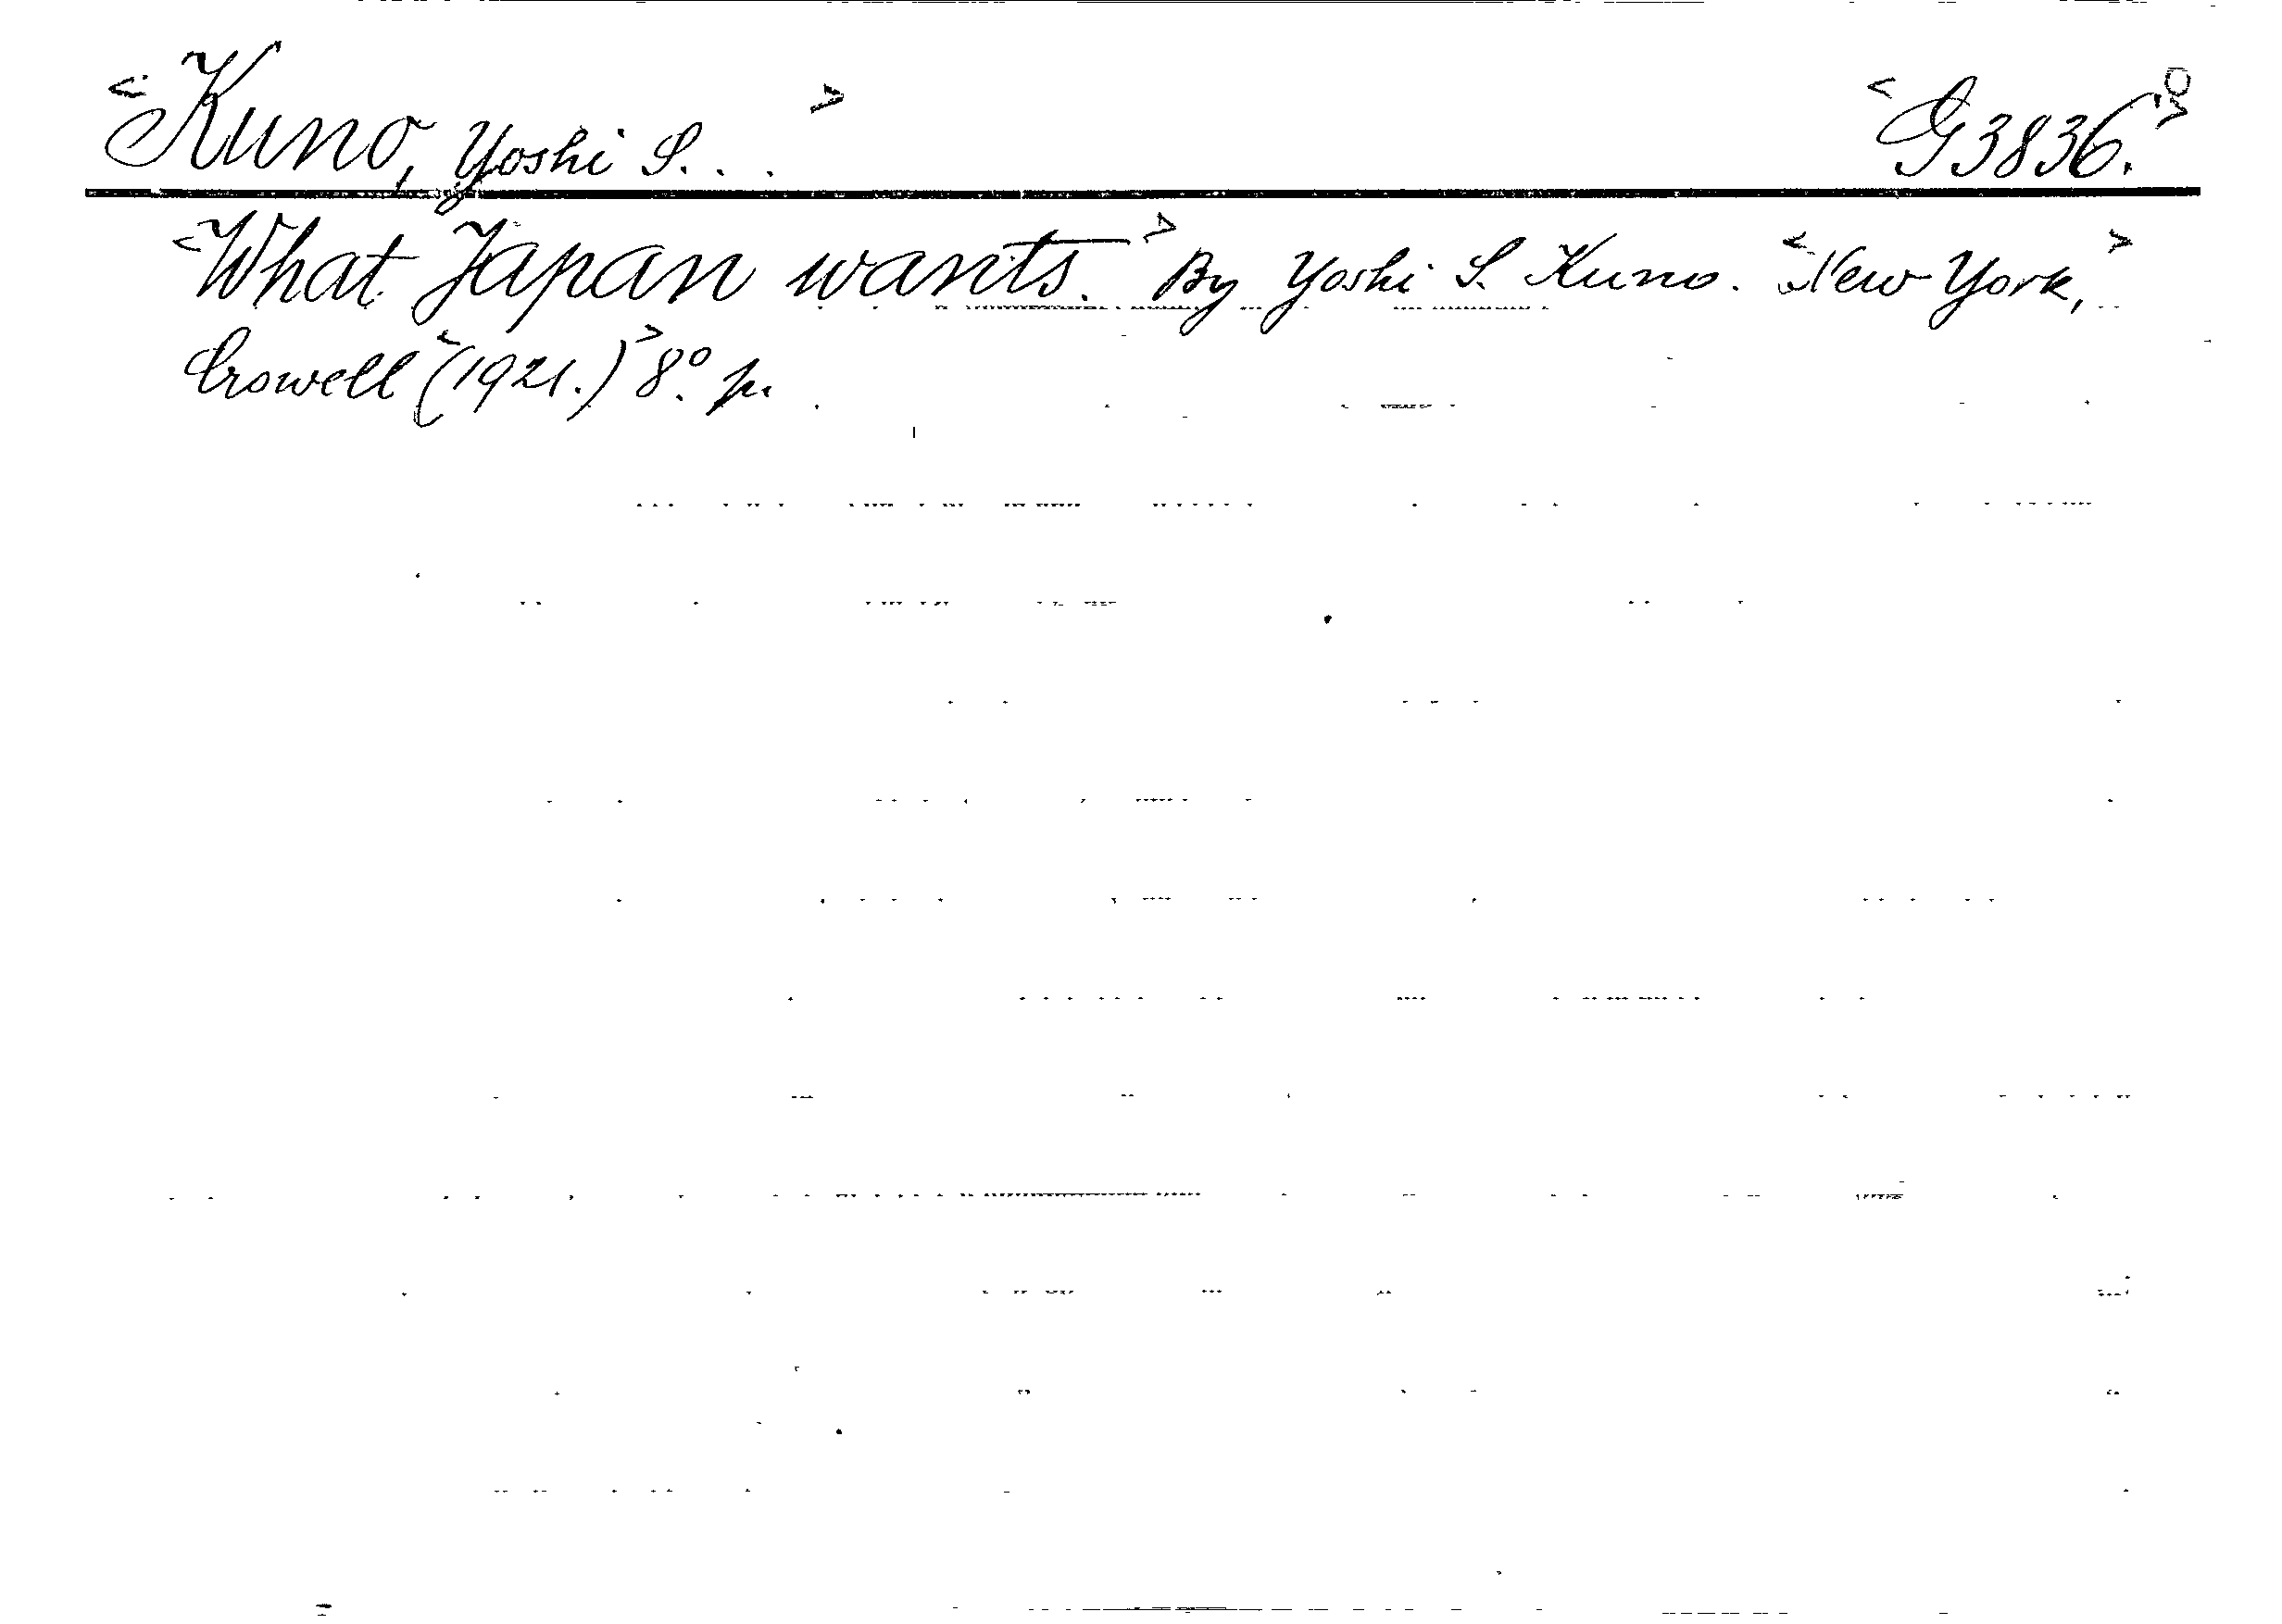 <Kuno, Yoshi S. . .> <G3836.>o
<What Japan wants.> By Yoshi S. Kuno. <New York,>
Crowell <(1921.)> 8º. p.